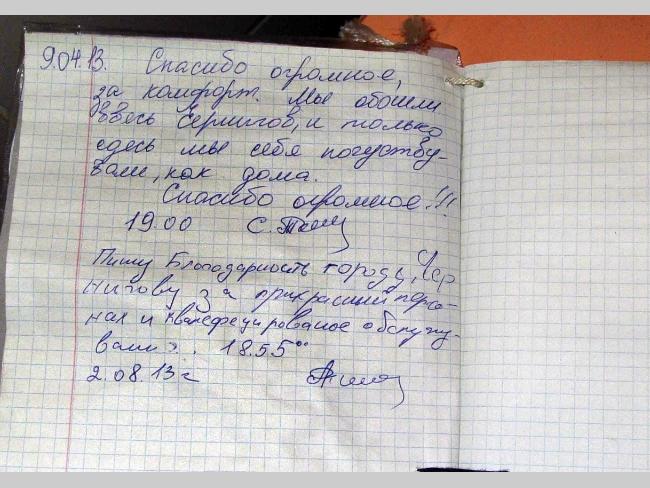 9.04.13. Спасибо огромное,
за комфорт. Мы обошли
весь Чернигов, и только
сдесь мы себя почуствву-
вали, как дома.
Спасибо огромное!!!
19.00 С.
Пишу Благодарность городу, Чер
нигову за прикрасний персо-
нал и кванефецированое обслужу-
вание. 18.55
2.08.13 г